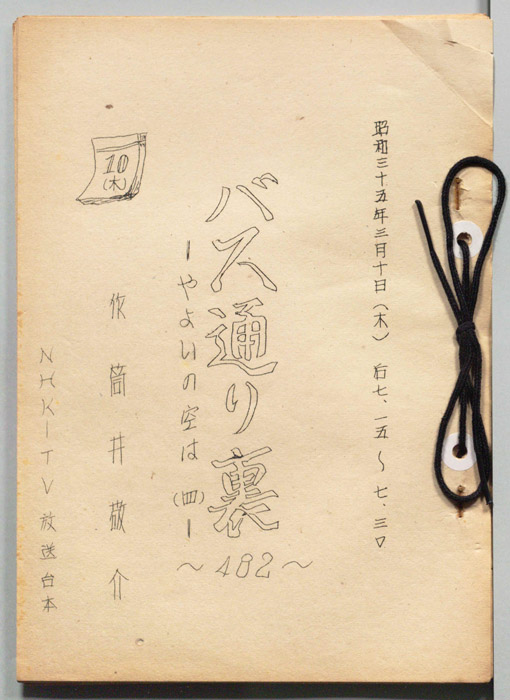 昭和三十五年三月十日（木） 后七.一五〜七.三〇
バス通り裏
〜482〜
ーやよいの空は（四）ー
10
（木）
作 筒井敬介
NHKーTV放送台本